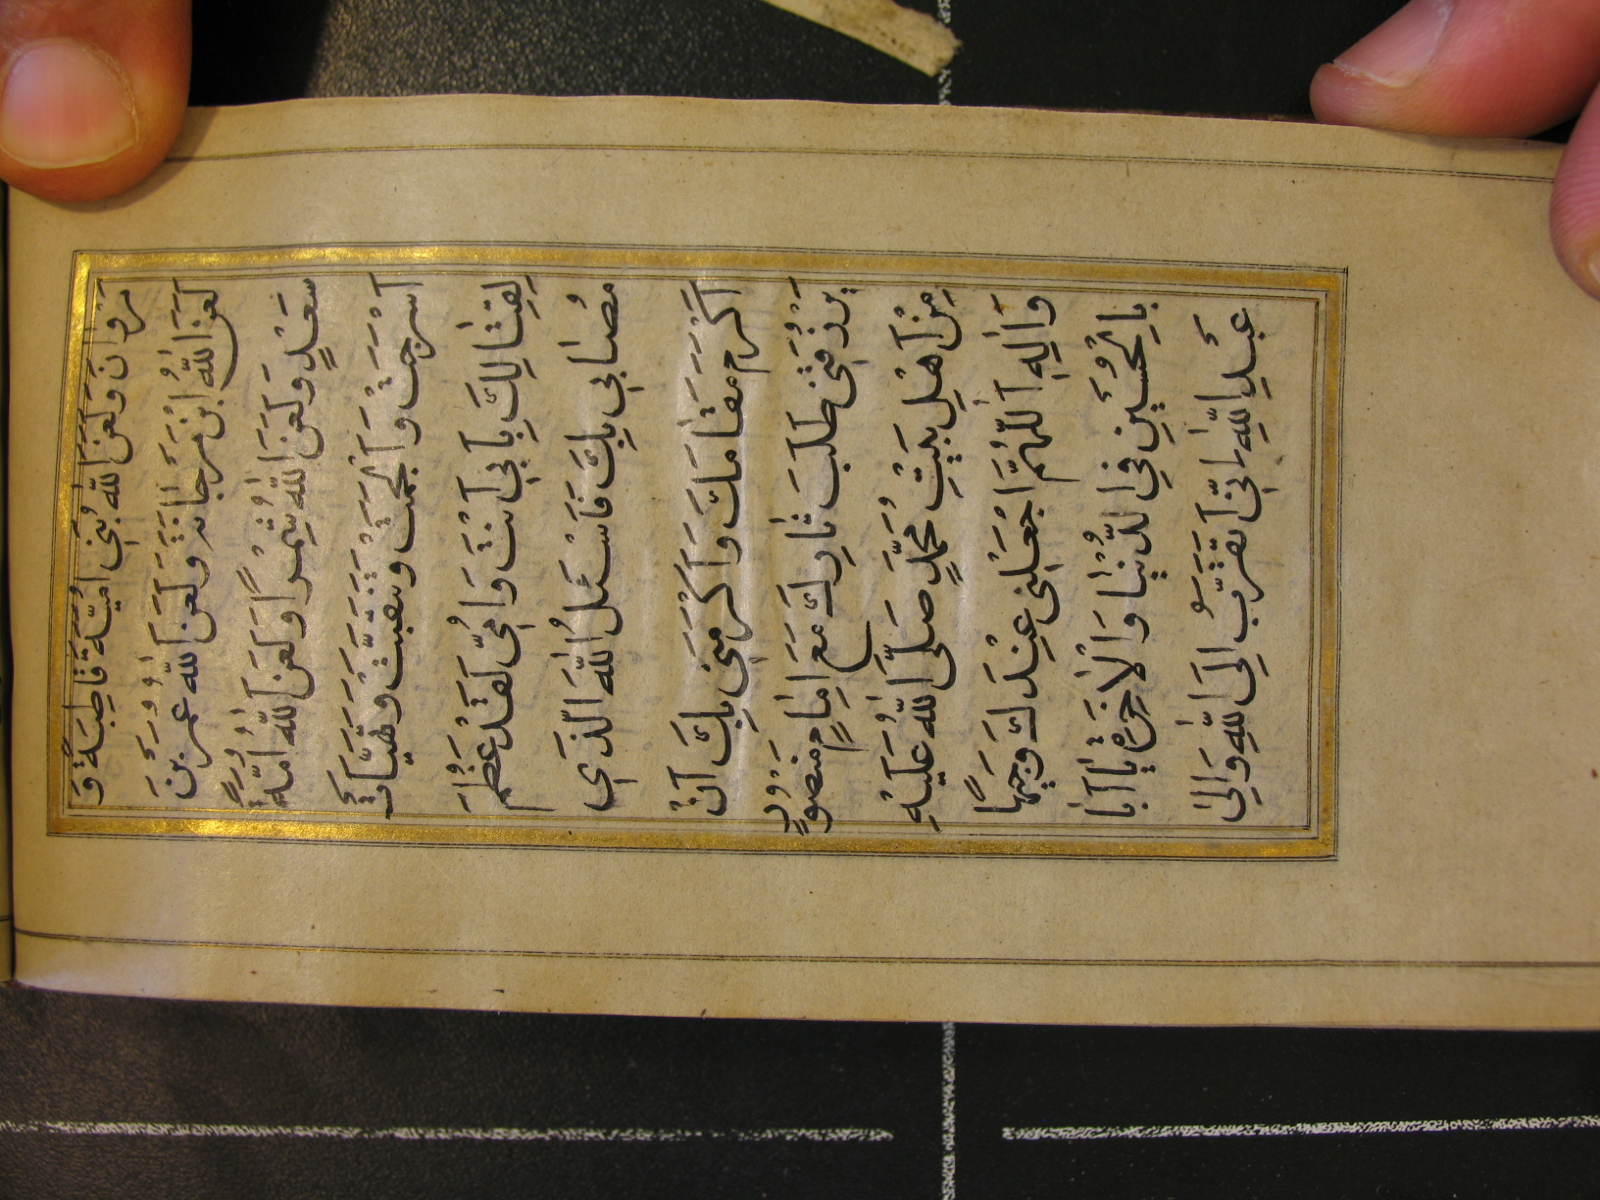 مَرْوانَ وَلَعَنَ اللهُ بَنِي اُمَيَّةَ قاطِبَةً وَ
لَعَنَ اللهُ ابْنَ مَرْجانَةَ وَلَعَنَ اللهُ عُمَرَ بْنَ
سَعْدٍ وَلَعَنَ اللهُ شِمْراً وَلَعَنَ اللهُ اُمَّةً
اَسْرَجَتْ وَاَلْجَمَتْ وَتَنَقَّبَتْ وَتَهَيَّاَتْ
لِقِتالِكَ بِاَبِي اَنْتَ وَاُمِّي لَقَدْ عَظُمَ
مُصابِي بِكَ فَاَسْئَلُ اللهَ الَّذِي
اَكْرَمَ مَقامَكَ وَاَكْرَمَنِي بِكَ اَنْ
يَرْزُقَنِي طَلَبَ ثارِكَ مَعَ اِمامٍ مَنْصُورٍ
مِنْ اَهْلِ بَيْتِ مُحَمَّدٍ صَلَّى اللهُ عَلَيْهِ
وَالِهِ اَللّٰهُمَّ اجْعَلْنِي عِنْدَكَ وَجِيهاً
بِالْحُسَيْنِ فِي الدُّنْيا وَالْاٰخِرَةِ يا اَبا
عَبْدِ اللهِ اِنِّي اَتَقَرَّبُ اِلَى اللهِ وَاِلىٰ